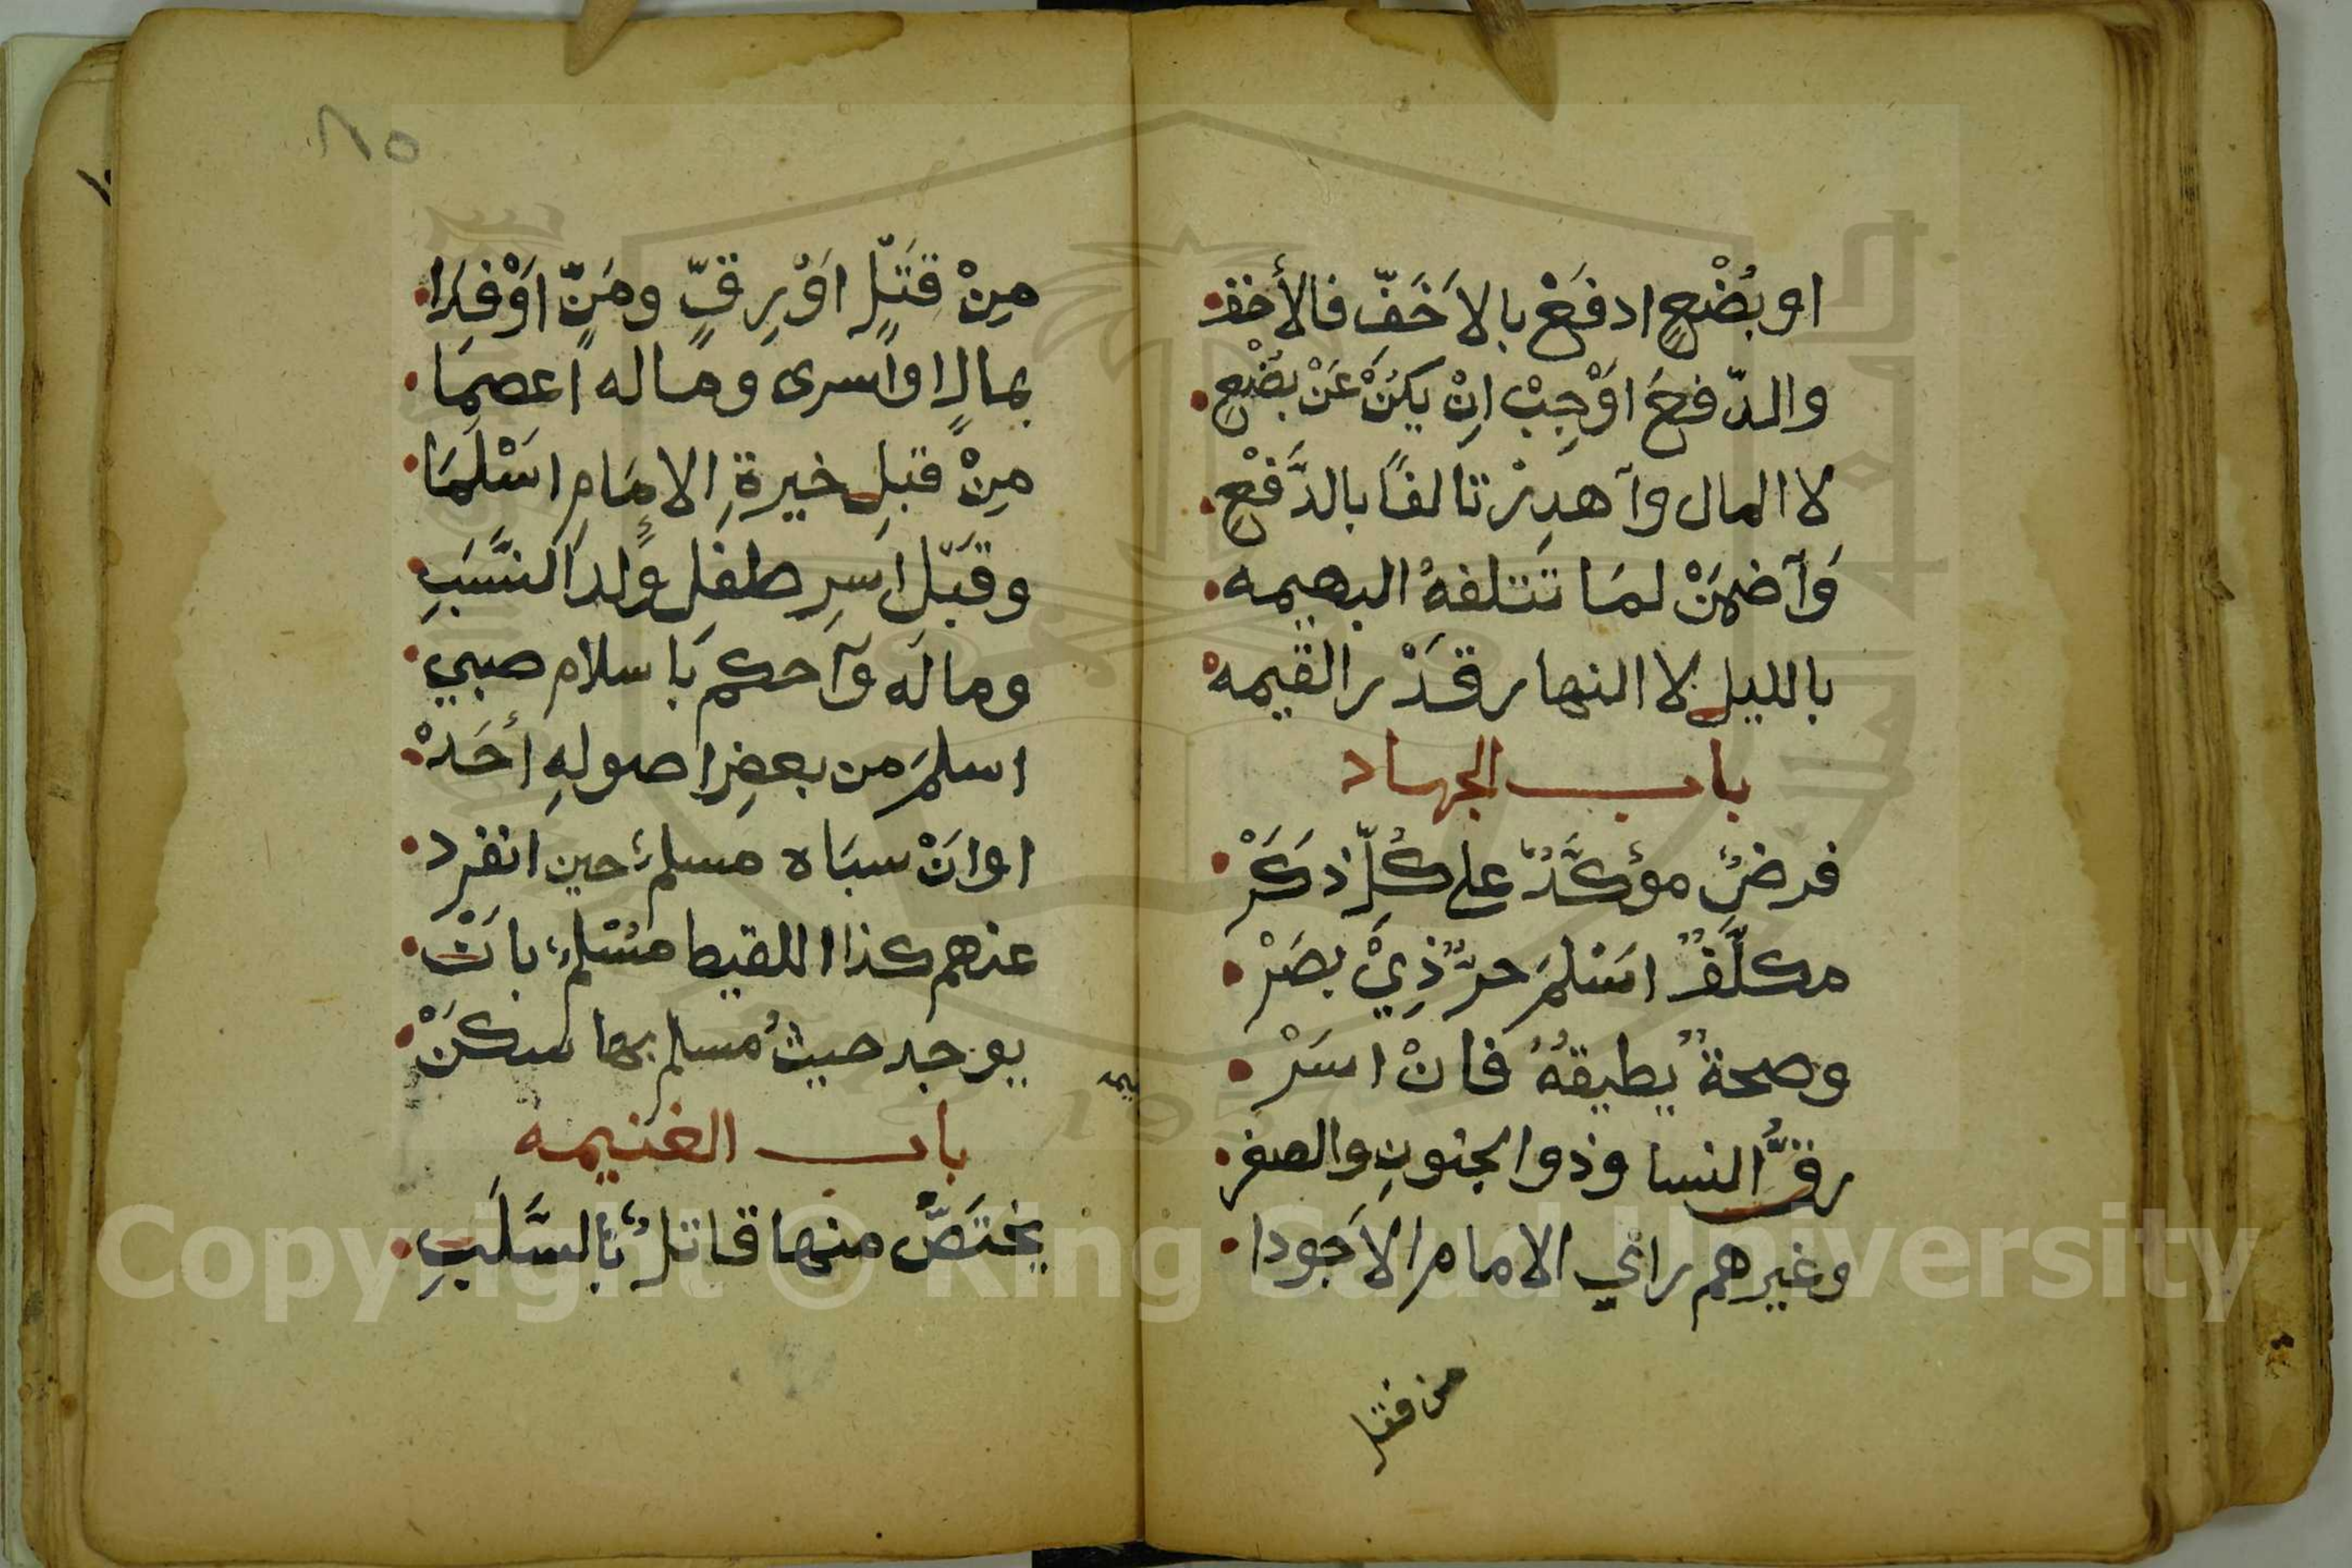 او بُضْعٍ ادفَعْ بالاَخَفِّ فالأخفْ
والدّفعَ اوْجِبْ انِْ يكنُْ عَنْ بضُْعٍ
لا المال وآهدِرْ تالفاً بالدَّفْعِ
وَآضمَنْ لمَا تَتلفهُ البهيمه
بالليل لا النهار قَدْر القيمهْ
باب الجهاد
فرضٌ مؤكَّدٌ على كُلِّ ذكَرْ
مكلَّفٌ اسَْلمَ حرٌّ ذِيْ بصَرْ
وصحةٌ يُطيقهُ فانْ اسَرْ
رقَّ النسا وذو الجنونِ والصغر
وغيرهم رائي الامام الاَجودا
من قتل
٨٥
مِنْ قَتلٍ اوَْ رِقٍّ ومَنٍّ اوَْ فِدَا
بمالٍ او اسرى وماله اعصِمَا
مِنْ قبلِ خيرةِ الامَامِ اسَْلَمَا
وقَبْل اسَرِ طفلٍ ولدَ النَّسَبِ
وماله وَآحكم باَسلامِ صبي
اسلمَ من بعضِ اصولهِ أحَدْ
او انَْ سبَاه مسلمٌ حين انفرد
عنهم كذا اللقيط مسْلمٌ بانْ
يوجد حيثُ مسلم بها سكَنْ
باب الغنيمه
يختَصُّ منها قاتلٌ باِلسَّلَبِ
Copyright © King Saud University
1957